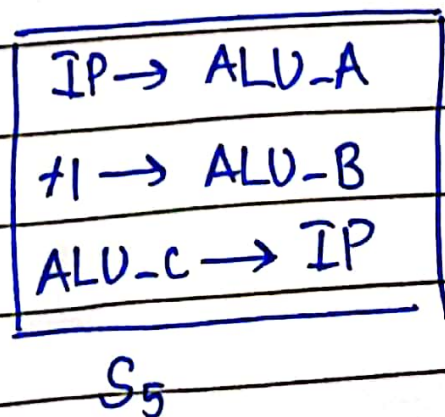 IP → ALU_A
+1 → ALU_B
ALU_C → IP
S5